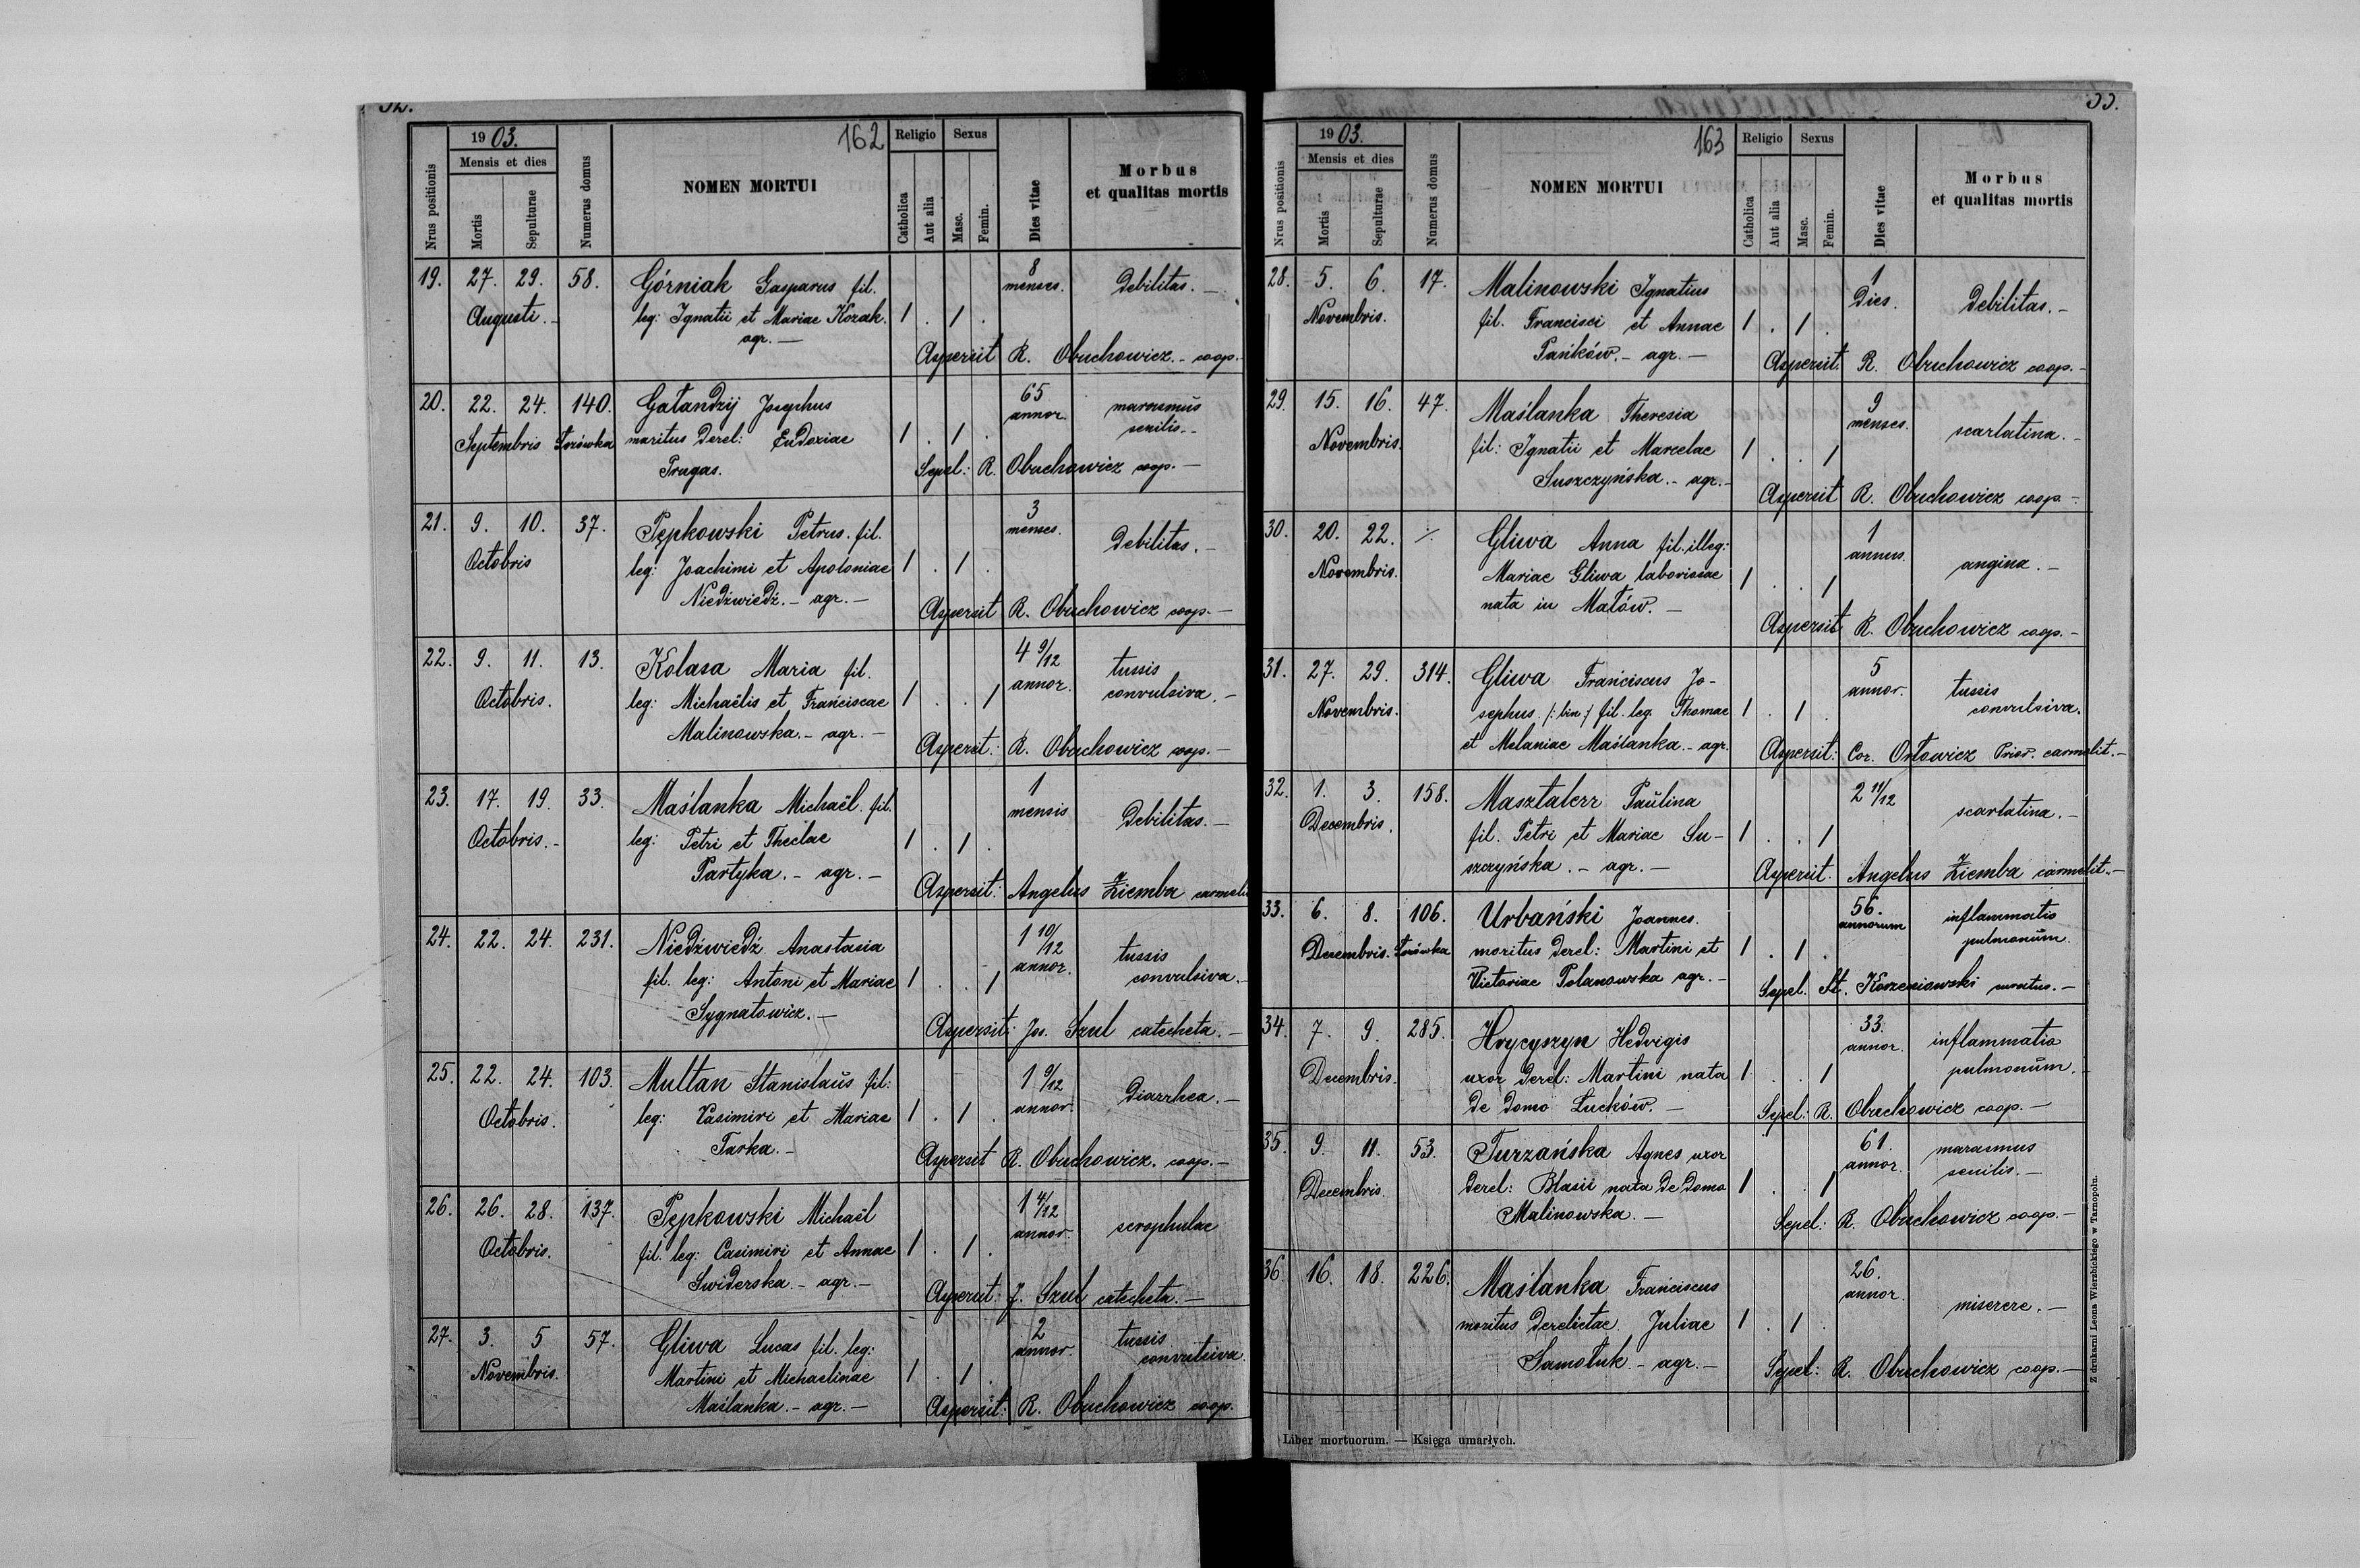 52.
1903.
162
Religio Sexus
Mensis et dies
Nrus positionis
Mortis
Sepulturae
Numerus domus
NOMEN MORTUI
Catholica
Aut alia
Masc.
Femin.
Dies vitae
Morbus
et qualitas mortis
19. 27. 29. 58. Górniak Gasparus fil. 8 menses. Debilitas. —
Augusti. — leg: Ignatii et Mariae Kozak. 1 . 1 .
agr. —
Aspersit R. Obuchowicz. - coop. -
20. 22. 24. 140. Gałandzij Josephus 65 annor. marasmus
Septembris maritus derel: Eudoxiae 1 . 1 . senilis. -
Prugas. Sepel: R. Obuchowicz coop. —
21. 9. 10. 37. Pępkowski Petrus. fil. 3 menses. Debilitas. —
Octobris leg: Joachimi et Apoloniae 1 . 1 .
Niedźwiedź. - agr. —
Aspersit R. Obuchowicz coop. —
22. 9. 11. 13. Kolasa Maria fil. 4 9/12 tussis
Octobris. leg: Michaëlis et Franciscae 1 . . 1 annor. convulsiva. -
Malinowska. - agr. —
Aspersit: R. Obuchowicz coop. —
23. 17. 19. 33. Maślanka Michaël. fil. 1 mensis Debilitas. —
Octobris. - leg: Petri et Theclae 1 . 1 .
Partyka. - agr. —
Aspersit: Angelus Ziemba
24. 22. 24. 231. Niedźwiedź Anastasia 1 10/12 tussis
fil. leg: Antoni et Mariae 1 . . 1 annor. convulsiva. -
Sygnatowicz. —
Aspersit: Jos. Szul catecheta. —
25. 22. 24. 103. Multan Stanislaus fil: 1 9/12 Diarrhea. —
Octobris. leg: Casimiri et Mariae 1 . 1 . annor.
Tarka. -
Aspersit R. Obuchowicz. coop. —
26. 26. 28. 137. Pępkowski Michaël 1 4/12 scrophulae
Octobris. fil. leg: Casimiri et Annae 1 . 1 . annor.
Swiderska - agr. —
Aspersit: J. Szul catecheta. —
27. 3. 5 57. Gliwa Lucas fil. leg: 2 annor. tussis
Novembris. Martini et Michaelinae 1 . 1 . convulsiva.
Maślanka. - agr. —
Aspersit: R. Obuchowicz coop.
53.
1903.
163
Religio Sexus
Mensis et dies
Nrus positionis
Mortis
Sepulturae
Numerus domus
NOMEN MORTUI
Catholica
Aut alia
Masc.
Femin.
Dies vitae
Morbus
et qualitas mortis
28. 5. 6. 17. Malinowski Ignatius 1 Dies. Debilitas. —
Novembris. fil. Francisci et Annae 1 . 1 .
Pańków. - agr. —
Aspersit: R. Obuchowicz coop. -
29. 15. 16. 47. Maślanka Theresia 9 menses. scarlatina. -
Novembris. fil: Ignatii et Marcelae 1 . . 1
Suszczyńska. - agr. -
Aspersit R. Obuchowicz coop. -
30. 20. 22. Gliwa Anna fil. illeg: 1 annus. angina. —
Novembris. Mariae Gliwa laborissae 1 . . 1
nata in Małów. —
Aspersit R. Obuchowicz coop. —
31. 27. 29. 314. Gliwa Franciscus Jo- 5 annor. tussis
Novembris. sephus /: bin :/ fil. leg. Thomae 1 . 1 . convulsiva.
et Melaniae Maślanka. - agr.
Aspersit: Cor. Orłowicz Prior. carmelit. —
32. 1. 3. 158. Masztalerz Paulina 2 11/12 scarlatina. —
Decembris. fil. Petri et Mariae Su- 1 . . 1
szczyńska. - agr. —
Aspersit. Angelus Ziemba carmelit. —
33. 6. 8. 106. Urbański Joannes. 56. annorum inflammatio
Decembris. moritus derel: Martini et 1 . 1 . pulmonum.
Victoriae Polanowska agr. —
Sepel. St. Korzeniowski —
34. 7. 9. 285. Hrycyszyn Hedvigis 33. annor. inflammatio
Decembris. uxor derel: Martini nata 1 . . 1 pulmonum.
de domo Łuców. —
Sepel: R. Obuchowicz coop. —
35. 9. 11. 53. Turzańska Agnes uxor 61. annor. marasmus
Decembris. derel: Blasii nata de domo 1 . . 1 senilis. —
Malinowska. —
Sepel: R. Obuchowicz coop. —
36. 16. 18. 226. Maślanka Franciscus 26. annor. miserere. —
moritus derelictae Juliae 1 . 1 .
Samotuk. - agr. —
Sepel: R. Obuchowicz coop. —
Liber mortuorum. — Księga umarłych.
Z drukarni Leona Wierzbickiego w Tarnopolu.